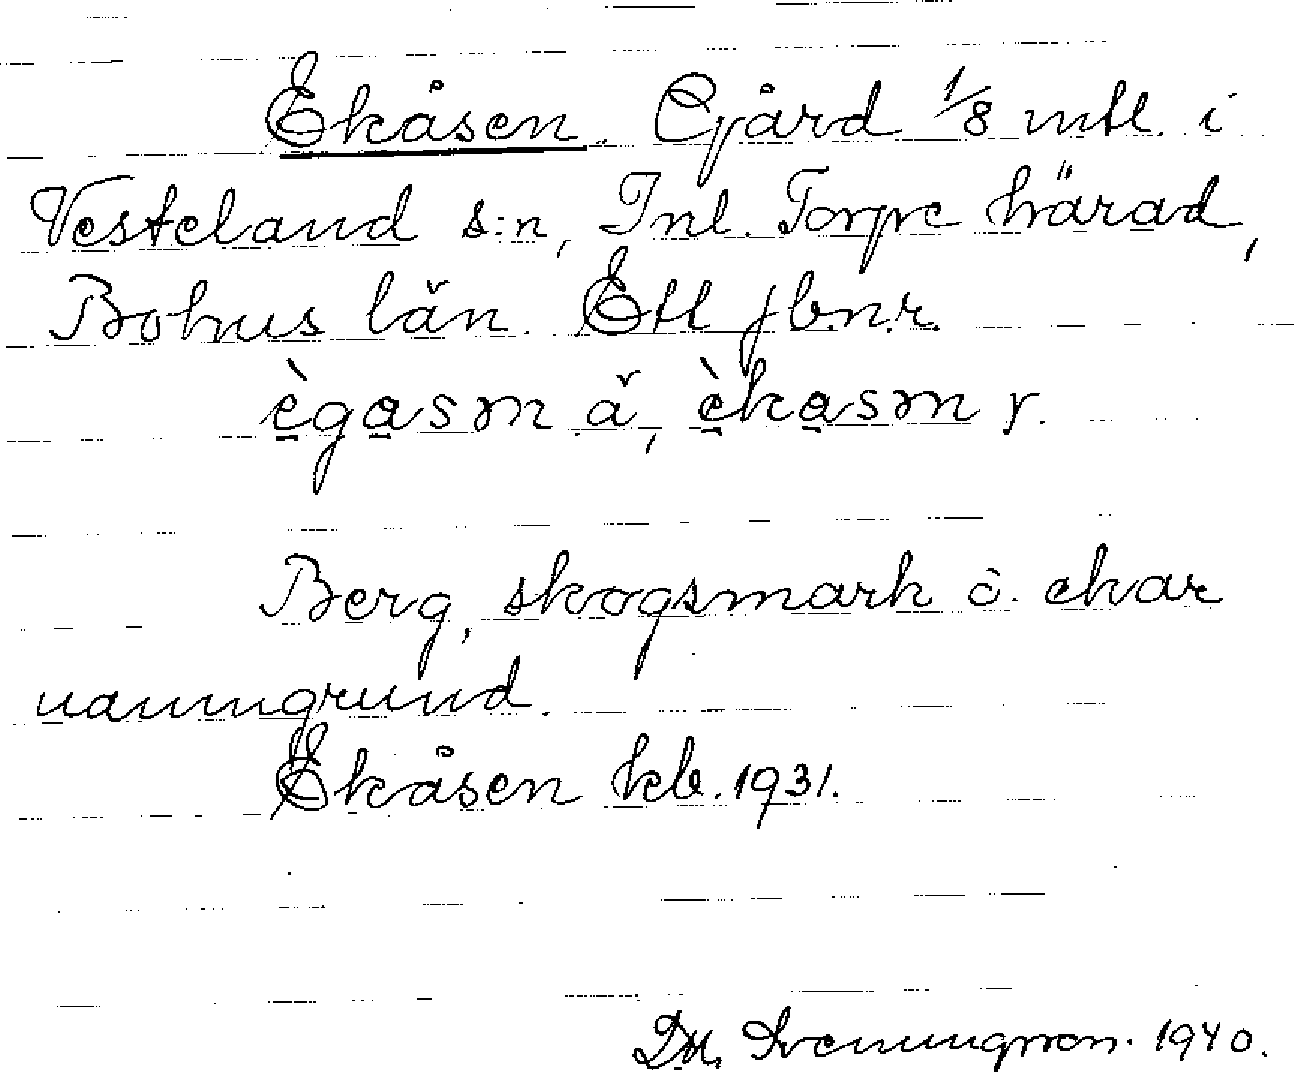 Ekåsen. Gård 1/8 mtl. i
Vesteland s:n, Inl. Torpe härad,
Bohus län. Ett jb.n.r.
ègasm ä, èkasm y.
Berg, skogsmark o. ekar
namngrund.
Ekåsen kb. 1931.
Sveningsson. 1940.